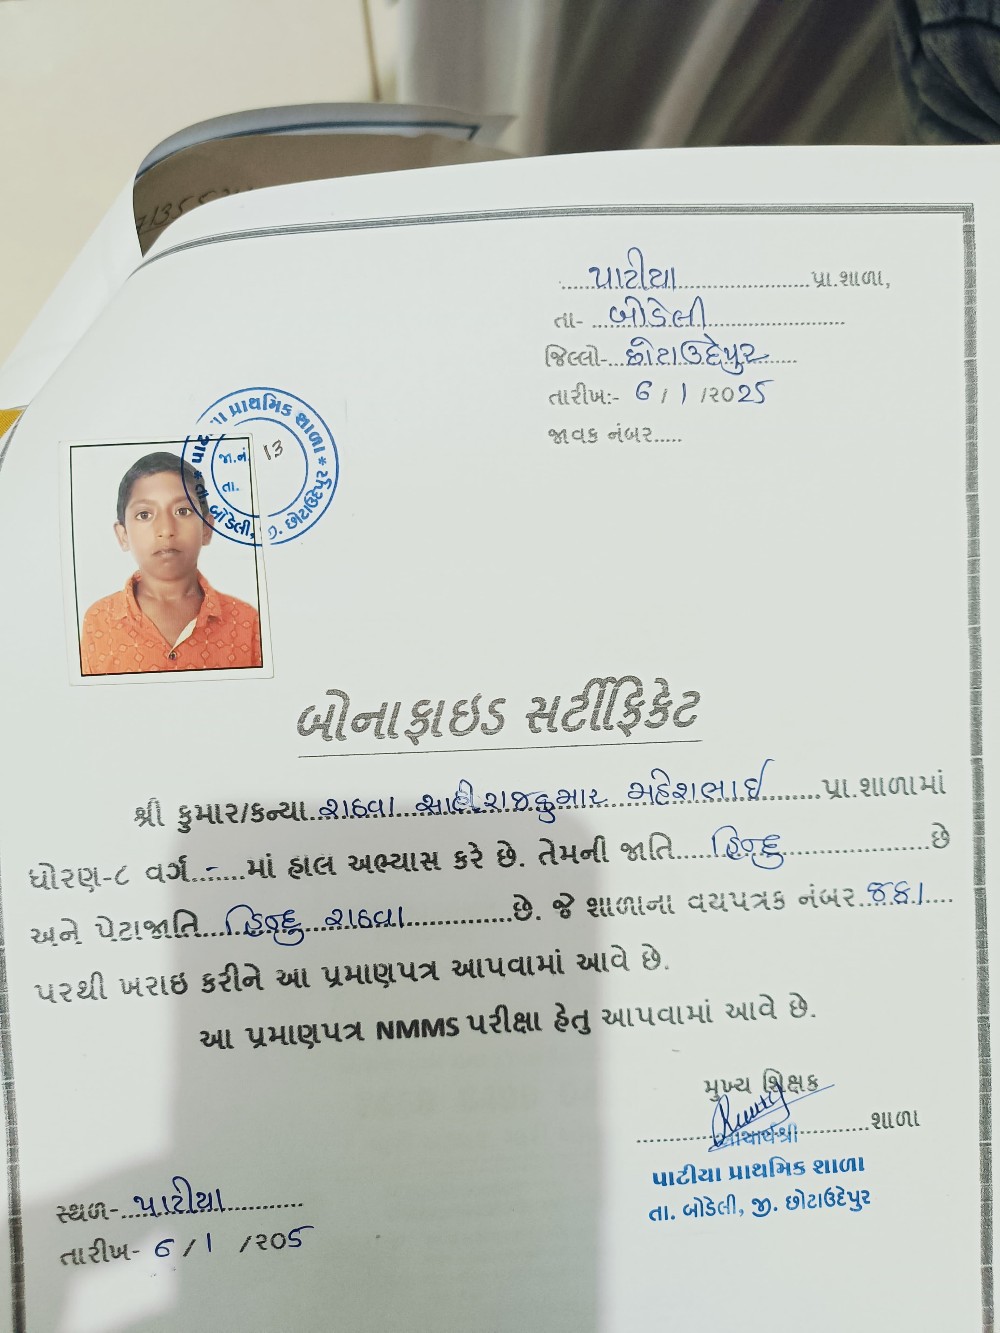 પાટીયા પ્રા.શાળા,
તા- બોડેલી
જિલ્લો- છોટાઉદેપુર
તારીખ:- 6 / 1 /૨૦25
જાવક નંબર.....
પ્રાથમિક શાળા * તા. બોડેલી, જી. છોટાઉદેપુર *
જા.નં. 13
તા.
બોનાફાઇડ સર્ટીફિકેટ
શ્રી કુમાર/કન્યા રાઠવા રાજકુમાર મહેશભાઈ પ્રા.શાળામાં
ધોરણ-૮ વર્ગ..-....માં હાલ અભ્યાસ કરે છે. તેમની જાતિ હિન્દુ છે
અને પેટાજાતિ હિન્દુ રાઠવા છે. જે શાળાના વયપત્રક નંબર
પરથી ખરાઇ કરીને આ પ્રમાણપત્ર આપવામાં આવે છે.
આ પ્રમાણપત્ર NMMS પરીક્ષા હેતુ આપવામાં આવે છે.
મુખ્ય શિક્ષક
શાળા
આચાર્યશ્રી
પાટીયા પ્રાથમિક શાળા
તા. બોડેલી, જી. છોટાઉદેપુર
સ્થળ- પાટીયા
તારીખ- 6 / 1 /૨૦5